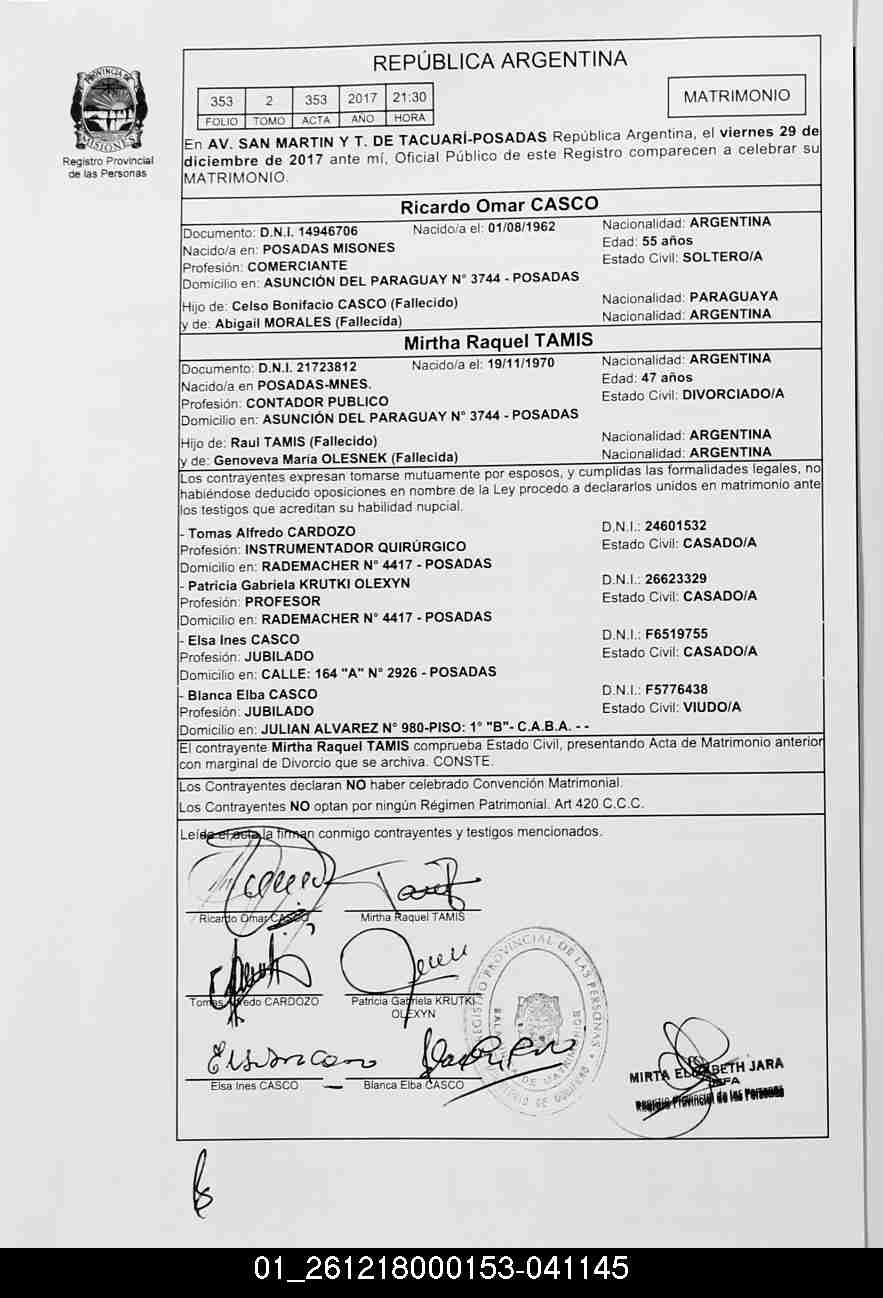 REPÚBLICA ARGENTINA
353 2 353 2017 21:30
FOLIO TOMO ACTA AÑO HORA
MATRIMONIO
PROVINCIA DE
MISIONES
Registro Provincial
de las Personas
En AV. SAN MARTIN Y T. DE TACUARÍ-POSADAS República Argentina, el viernes 29 de
diciembre de 2017 ante mí, Oficial Público de este Registro comparecen a celebrar su
MATRIMONIO.
Ricardo Omar CASCO
Documento: D.N.I. 14946706 Nacido/a el: 01/08/1962 Nacionalidad: ARGENTINA
Nacido/a en: POSADAS MISONES Edad: 55 años
Profesión: COMERCIANTE Estado Civil: SOLTERO/A
Domicilio en: ASUNCIÓN DEL PARAGUAY N° 3744 - POSADAS
Hijo de: Celso Bonifacio CASCO (Fallecido) Nacionalidad: PARAGUAYA
y de: Abigail MORALES (Fallecida) Nacionalidad: ARGENTINA
Mirtha Raquel TAMIS
Documento: D.N.I. 21723812 Nacido/a el: 19/11/1970 Nacionalidad: ARGENTINA
Nacido/a en POSADAS-MNES. Edad: 47 años
Profesión: CONTADOR PUBLICO Estado Civil: DIVORCIADO/A
Domicilio en: ASUNCIÓN DEL PARAGUAY N° 3744 - POSADAS
Hijo de: Raul TAMIS (Fallecido) Nacionalidad: ARGENTINA
y de: Genoveva María OLESNEK (Fallecida) Nacionalidad: ARGENTINA
Los contrayentes expresan tomarse mutuamente por esposos, y cumplidas las formalidades legales, no
habiéndose deducido oposiciones en nombre de la Ley procedo a declararlos unidos en matrimonio ante
los testigos que acreditan su habilidad nupcial.
- Tomas Alfredo CARDOZO D.N.I.: 24601532
Profesión: INSTRUMENTADOR QUIRÚRGICO Estado Civil: CASADO/A
Domicilio en: RADEMACHER N° 4417 - POSADAS
- Patricia Gabriela KRUTKI OLEXYN D.N.I.: 26623329
Profesión: PROFESOR Estado Civil: CASADO/A
Domicilio en: RADEMACHER N° 4417 - POSADAS
- Elsa Ines CASCO D.N.I.: F6519755
Profesión: JUBILADO Estado Civil: CASADO/A
Domicilio en: CALLE: 164 "A" N° 2926 - POSADAS
- Blanca Elba CASCO D.N.I.: F5776438
Profesión: JUBILADO Estado Civil: VIUDO/A
Domicilio en: JULIAN ALVAREZ N° 980-PISO: 1° "B"- C.A.B.A. - -
El contrayente Mirtha Raquel TAMIS comprueba Estado Civil, presentando Acta de Matrimonio anterior
con marginal de Divorcio que se archiva. CONSTE.
Los Contrayentes declaran NO haber celebrado Convención Matrimonial.
Los Contrayentes NO optan por ningún Régimen Patrimonial. Art 420 C.C.C.
Leída el acta la firman conmigo contrayentes y testigos mencionados.
Ricardo Omar CASCO Mirtha Raquel TAMIS
Tomas Alfredo CARDOZO Patricia Gabriela KRUTKI
OLEXYN
Elsa Ines CASCO Blanca Elba CASCO
REGISTRO PROVINCIAL DE LAS PERSONAS
DE MATRIMONIOS
MIRTA ELIZABETH JARA
JEFA
Registro Provincial de las Personas
01_261218000153-041145